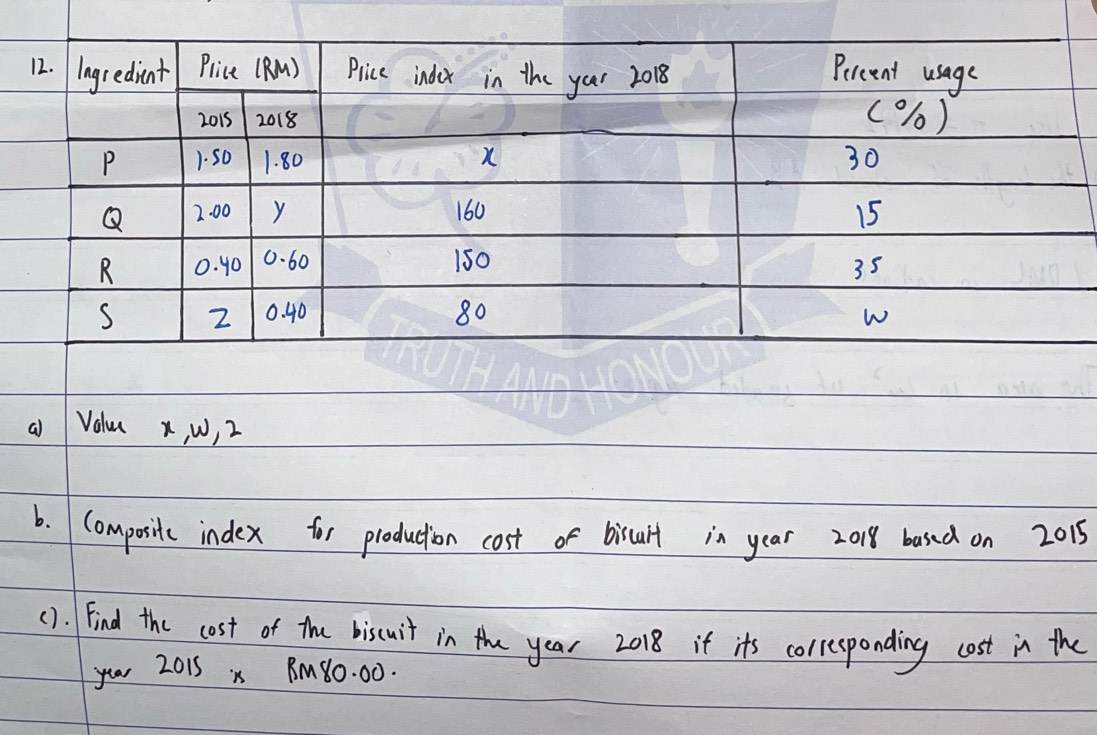 12. Ingredient Price (RM) Price index in the year 2018 Percent usage
2015 2018 (%)
P 1.50 1.80 x 30
Q 2.00 y 160 15
R 0.40 0.60 150 35
S z 0.40 80 w
TRUTH AND HONOUR
a) Value x, w, z
b. Composite index for production cost of biscuit in year 2018 based on 2015
c). Find the cost of the biscuit in the year 2018 if its corresponding cost in the
year 2015 is RM80.00.